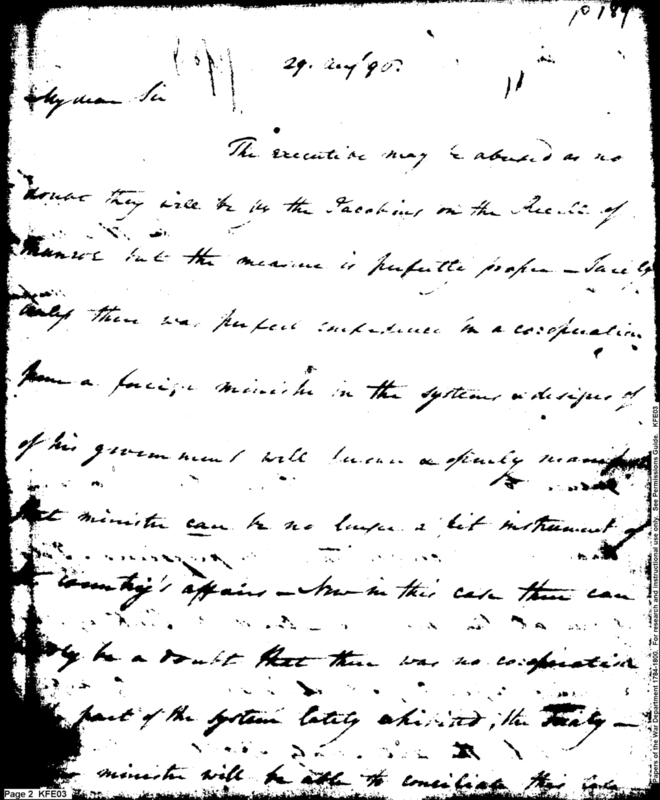 10 189
Copy
29. Aug' 96.
My dear Sir
The executive may be abused as no
doubt they will be by the Jacobins on the Recall of
Munroe but the measure is perfectly proper —
unless there was perfect confidence in a cooperation
from a foreign minister in the systems & designs of
of his government will known & openly
that minister can be no longer a fit instrument of
country's affairs — Now in this case there can
be a doubt that there was no cooperation
part of the system lately, the Treaty —
minister will be able to conciliate this
Page 2 KFE03
Papers of the War Department 1784-1800. For research and instructional use only. See Permissions Guide. KFE03